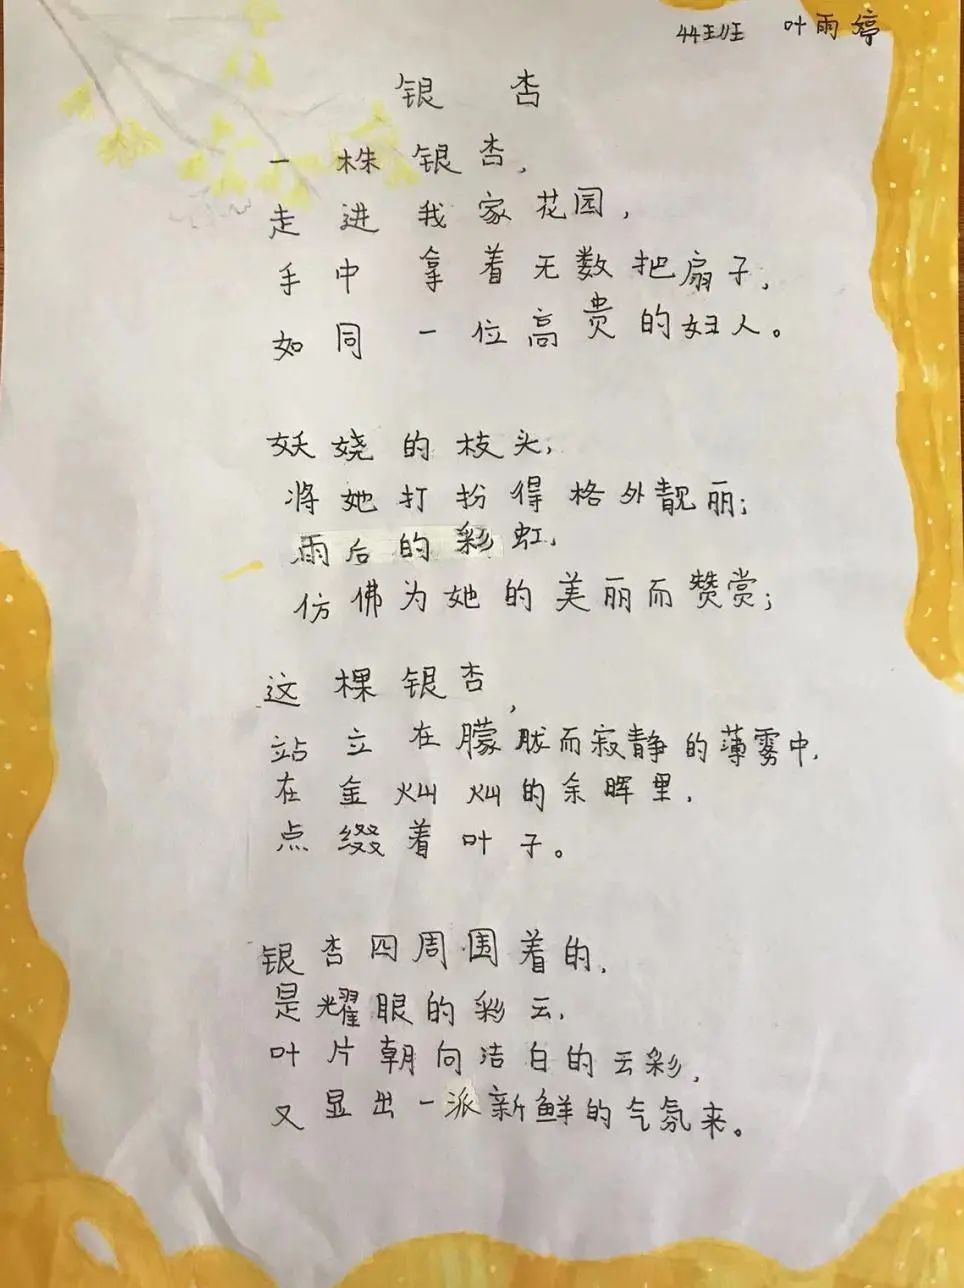 44班 叶雨婷
银杏
一株银杏,
走进我家花园,
手中拿着无数把扇子,
如同一位高贵的妇人。
妖娆的枝头,
将她打扮得格外靓丽;
雨后的彩虹,
仿佛为她的美丽而赞赏;
这棵银杏,
站立在朦胧而寂静的薄雾中,
在金灿灿的余晖里,
点缀着叶子。
银杏四周围着的,
是耀眼的彩云,
叶片朝向洁白的云彩,
又显出一派新鲜的气氛来。